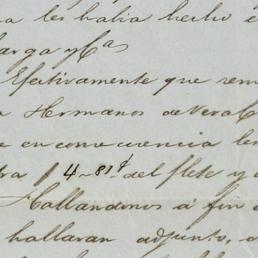 a les habia hecho e
arga y Cᵃˢ
Efectivamente que rem
a Hermanos de Vera C
e en consecuencia les
tra $ 4-81 del flete y
Hallandonos á fin d
hallaran adjunto,